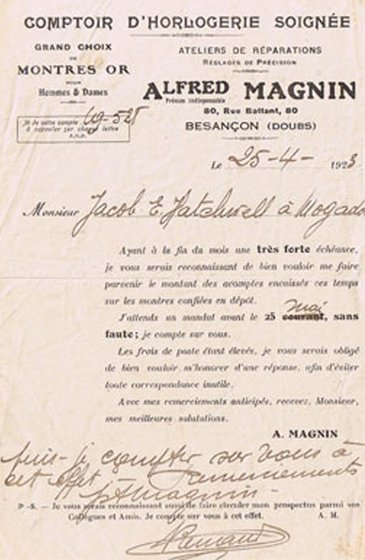 COMPTOIR D'HORLOGERIE SOIGNÉE
GRAND CHOIX
DE
MONTRES OR
POUR
Hommes & Dames
ATELIERS DE RÉPARATIONS
RÉGLAGES DE PRÉCISION
ALFRED MAGNIN
Prénom indispensable
80, Rue Battant, 80
BESANÇON (DOUBS)
N° de Votre compte
à rappeler par chaque lettre
S.V.P.
Le 25-4- 1923
Monsieur Jacob E. à Mogado
Ayant à la fin du mois une très forte échéance,
je vous serais reconnaissant de bien vouloir me faire
parvenir le montant des acomptes encaissés ces temps
sur les montres confiées en dépôt.
mai
J'attends un mandat avant le 25 courant, sans
faute; je compte sur vous.
Les frais de poste étant élevés, je vous serais obligé
de bien vouloir m'honorer d'une réponse, afin d'éviter
toute correspondance inutile.
Avec mes remerciements anticipés, recevez, Monsieur,
mes meilleures salutations.
A. MAGNIN
puis-je compter sur vous à
cet effet -
P.-S. - Je vous serais reconnaissant aussi de faire circuler mon prospectus parmi vos
Collègues et Amis. Je compte sur vous à cet effet. A. M.